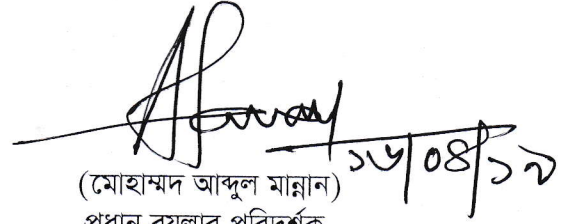 ১৬/০৪/১৯
(মোহাম্মদ আব্দুল মান্নান)
প্রধান বয়লার পরিদর্শক